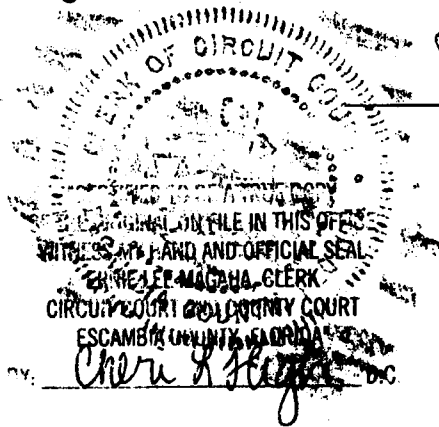 CLERK OF CIRCUIT COU
ORIGINAL ON FILE IN THIS OFFICE
WITNESS MY HAND AND OFFICIAL SEAL
ERNIE LEE MAGAHA, CLERK
CIRCUIT COURT AND COUNTY COURT
ESCAMBIA COUNTY, FLORIDA
BY: Cheri D.C.